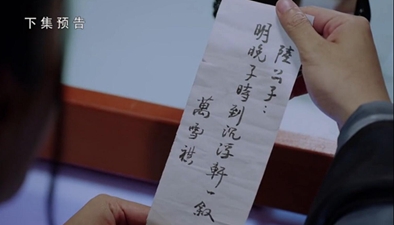 下集预告
陸公子：
明晚子時到沉浮軒一敘
萬雪祺